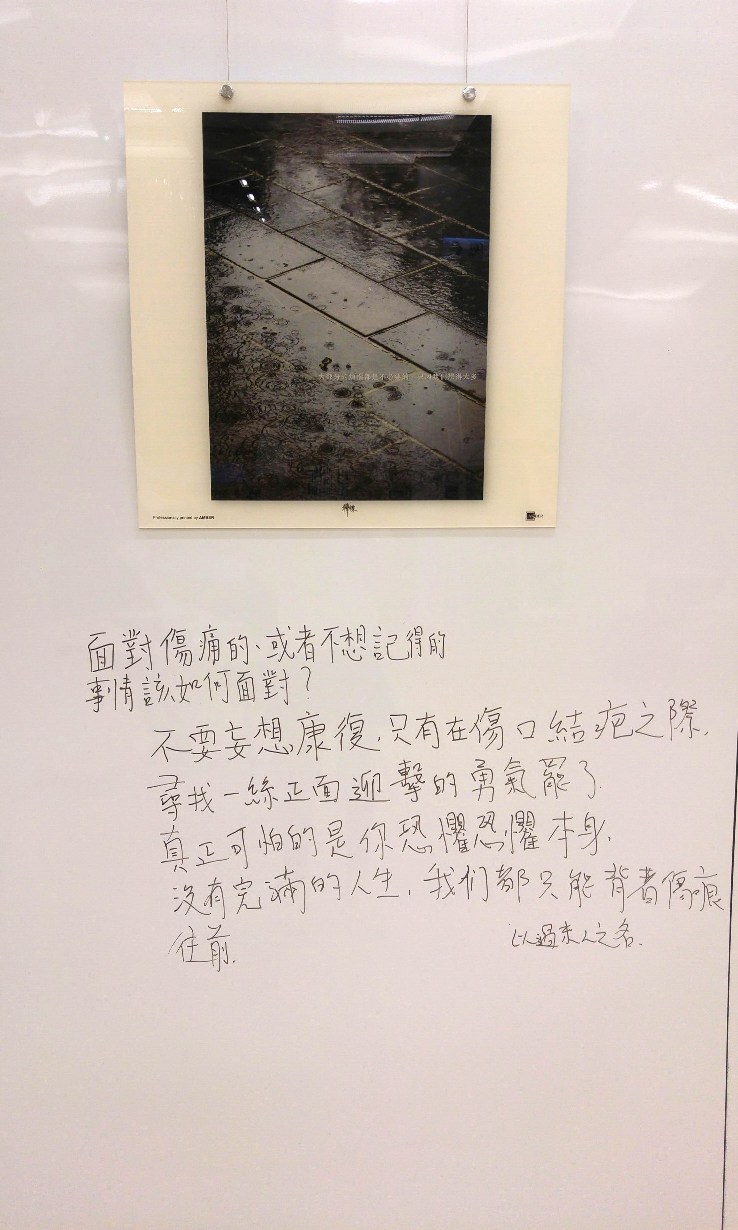 Professionally printed by AMBER
面對傷痛的、或者不想記得的
事情該如何面對？
不要妄想康復，只有在傷口結疤之際，
尋找一絲正面迎擊的勇氣罷了.
真正可怕的是你恐懼恐懼本身.
沒有完滿的人生，我们都只能背著傷痕
往前.
以過來人之名.